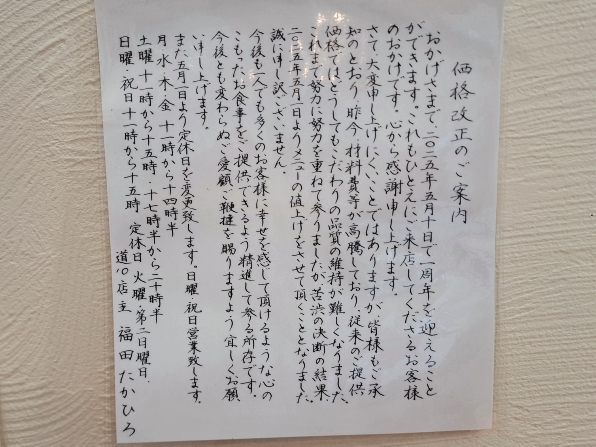 価格改正のご案内
おかげさまで、二〇二五年五月十日で一周年を迎えること
ができます。これもひとえにご来店してくださるお客様
のおかげです。心から感謝申し上げます。
さて、大変申し上げにくいことではありますが、皆様もご承
知のとおり、昨今、材料費等が高騰しており、従来のご提供
価格ではどうしてもこだわりの品質の維持が難しくなりました。
これまで努力に努力を重ねて参りましたが、苦渋の決断の結果、
二〇二五年五月一日よりメニューの値上げをさせて頂くこととなりました。
誠に申し訳ございません。
今後も一人でも多くのお客様に幸せを感じて頂けるような心の
こもったお食事をご提供できるよう精進して参る所存です。
今後とも変わらぬご愛顧、ご鞭撻を賜りますよう宜しくお願
い申し上げます。
また五月一日より定休日を変更致します。日曜・祝日営業致します。
月水木金 十一時から十四時半
土曜 十一時から十五時・十七時半から二十時半
日曜・祝日 十一時から十五時 定休日 火曜・第二日曜日.
店主 福田たかひろ